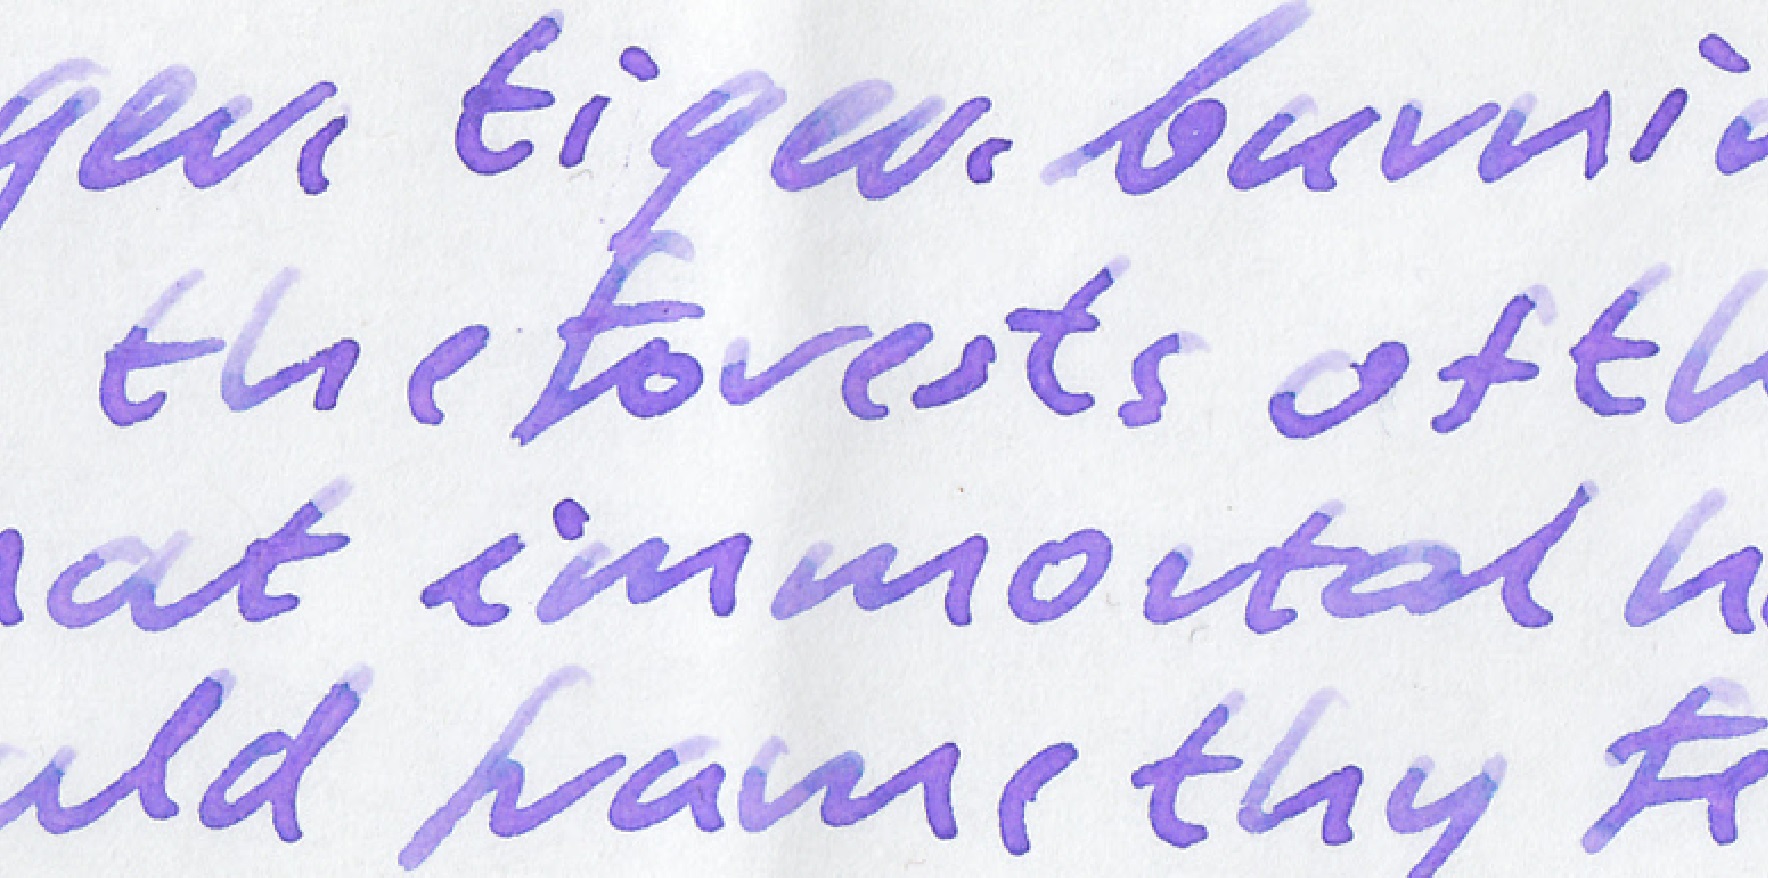 ger, tiger, burni
the forests of th
hat immortal h
uld frame thy fe